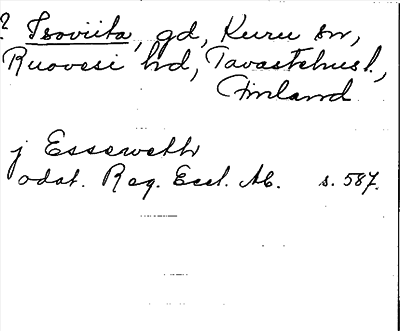 ? Isoviita, gd, Kuru sn,
Ruovesi hd, Tavastehus l.,
Finland
j Esseweth
odat. Reg. Eccl. Ab. s. 587.